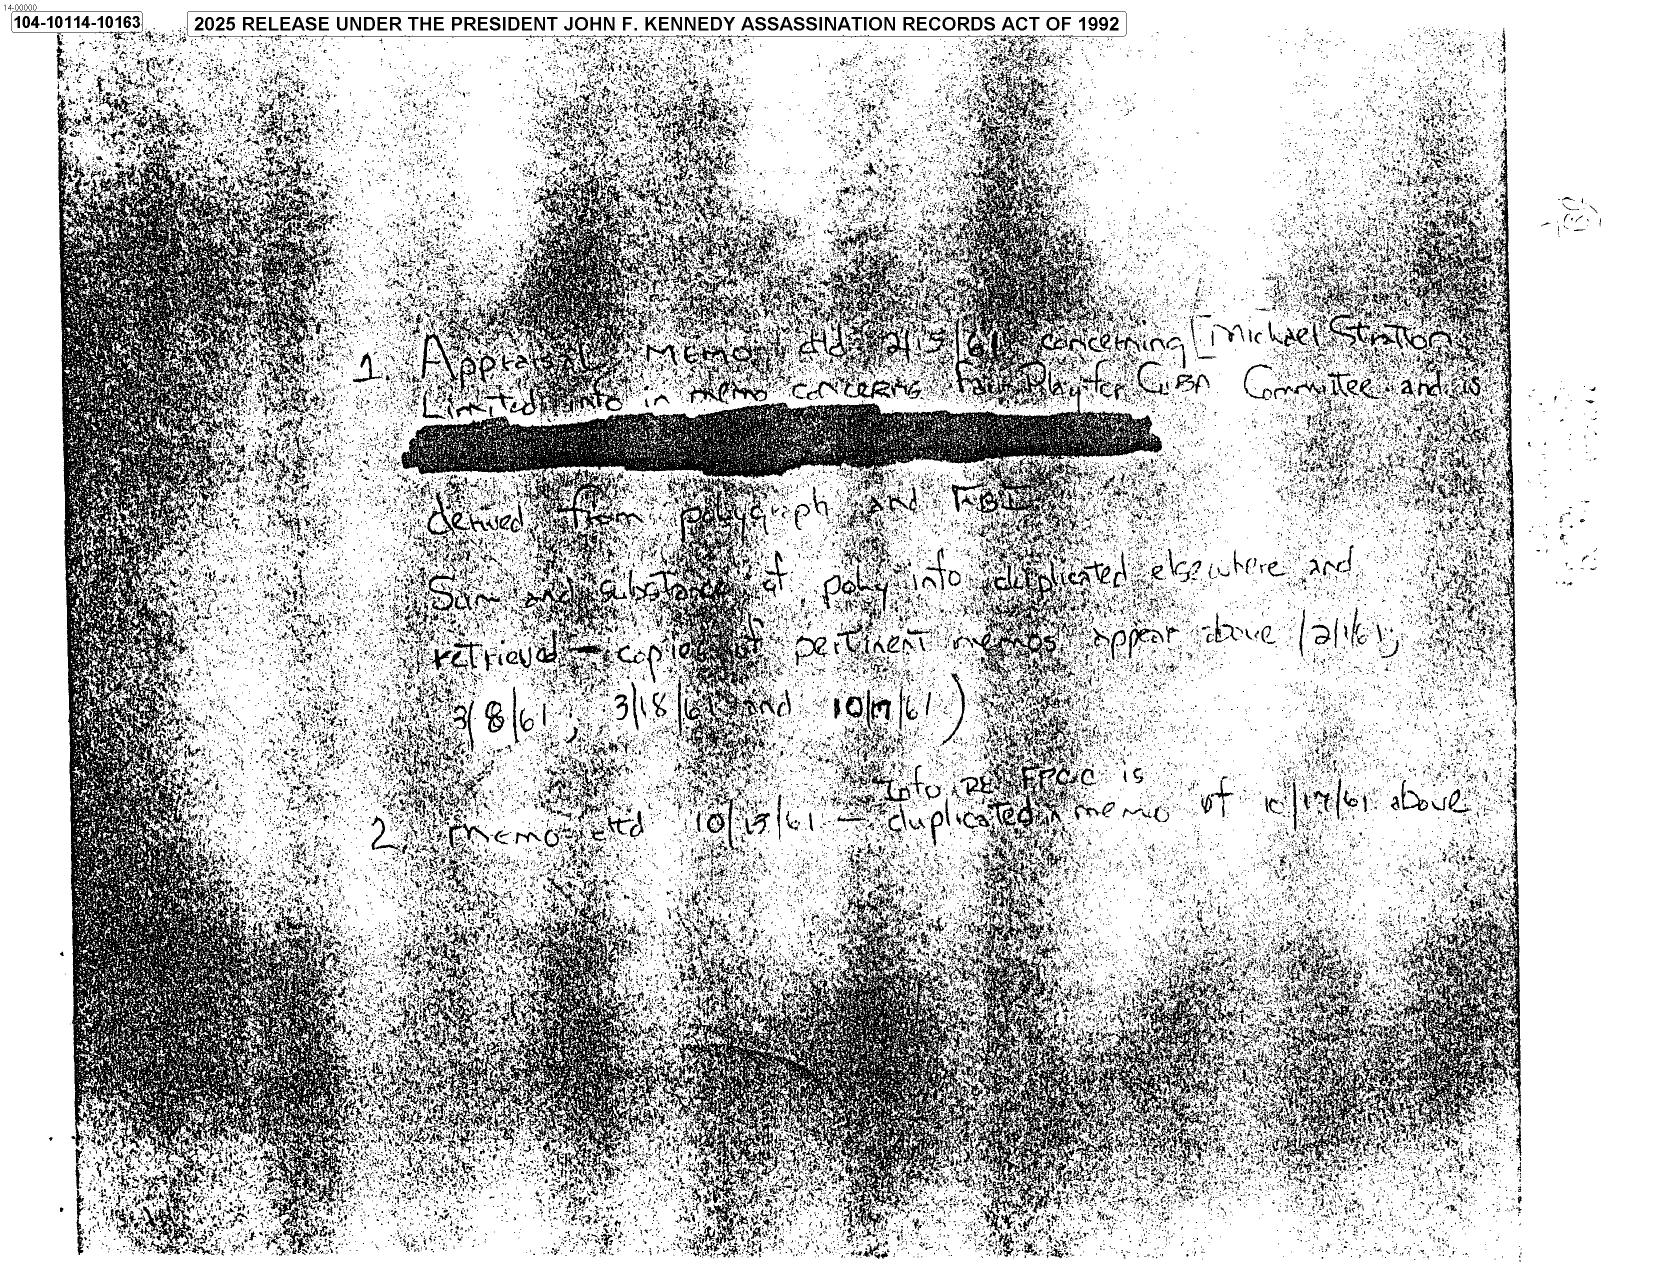 14-00000
104-10114-10163
2025 RELEASE UNDER THE PRESIDENT JOHN F. KENNEDY ASSASSINATION RECORDS ACT OF 1992
1. Appraisal Memo dtd 2/15/61 concerning [Michael Stratton
Limited info in memo concerns Fair Play for CUBA Committee and is
derived from polygraph and FBI
Sum and substance of poly info duplicated elsewhere and
retrieved — copies of pertinent memos appear above (2/1/61;
3/8/61; 3/18/61 and 10/17/61)
Info RE FPCC is
2. Memo dtd 10/13/61 — duplicated in memo of 10/17/61 above